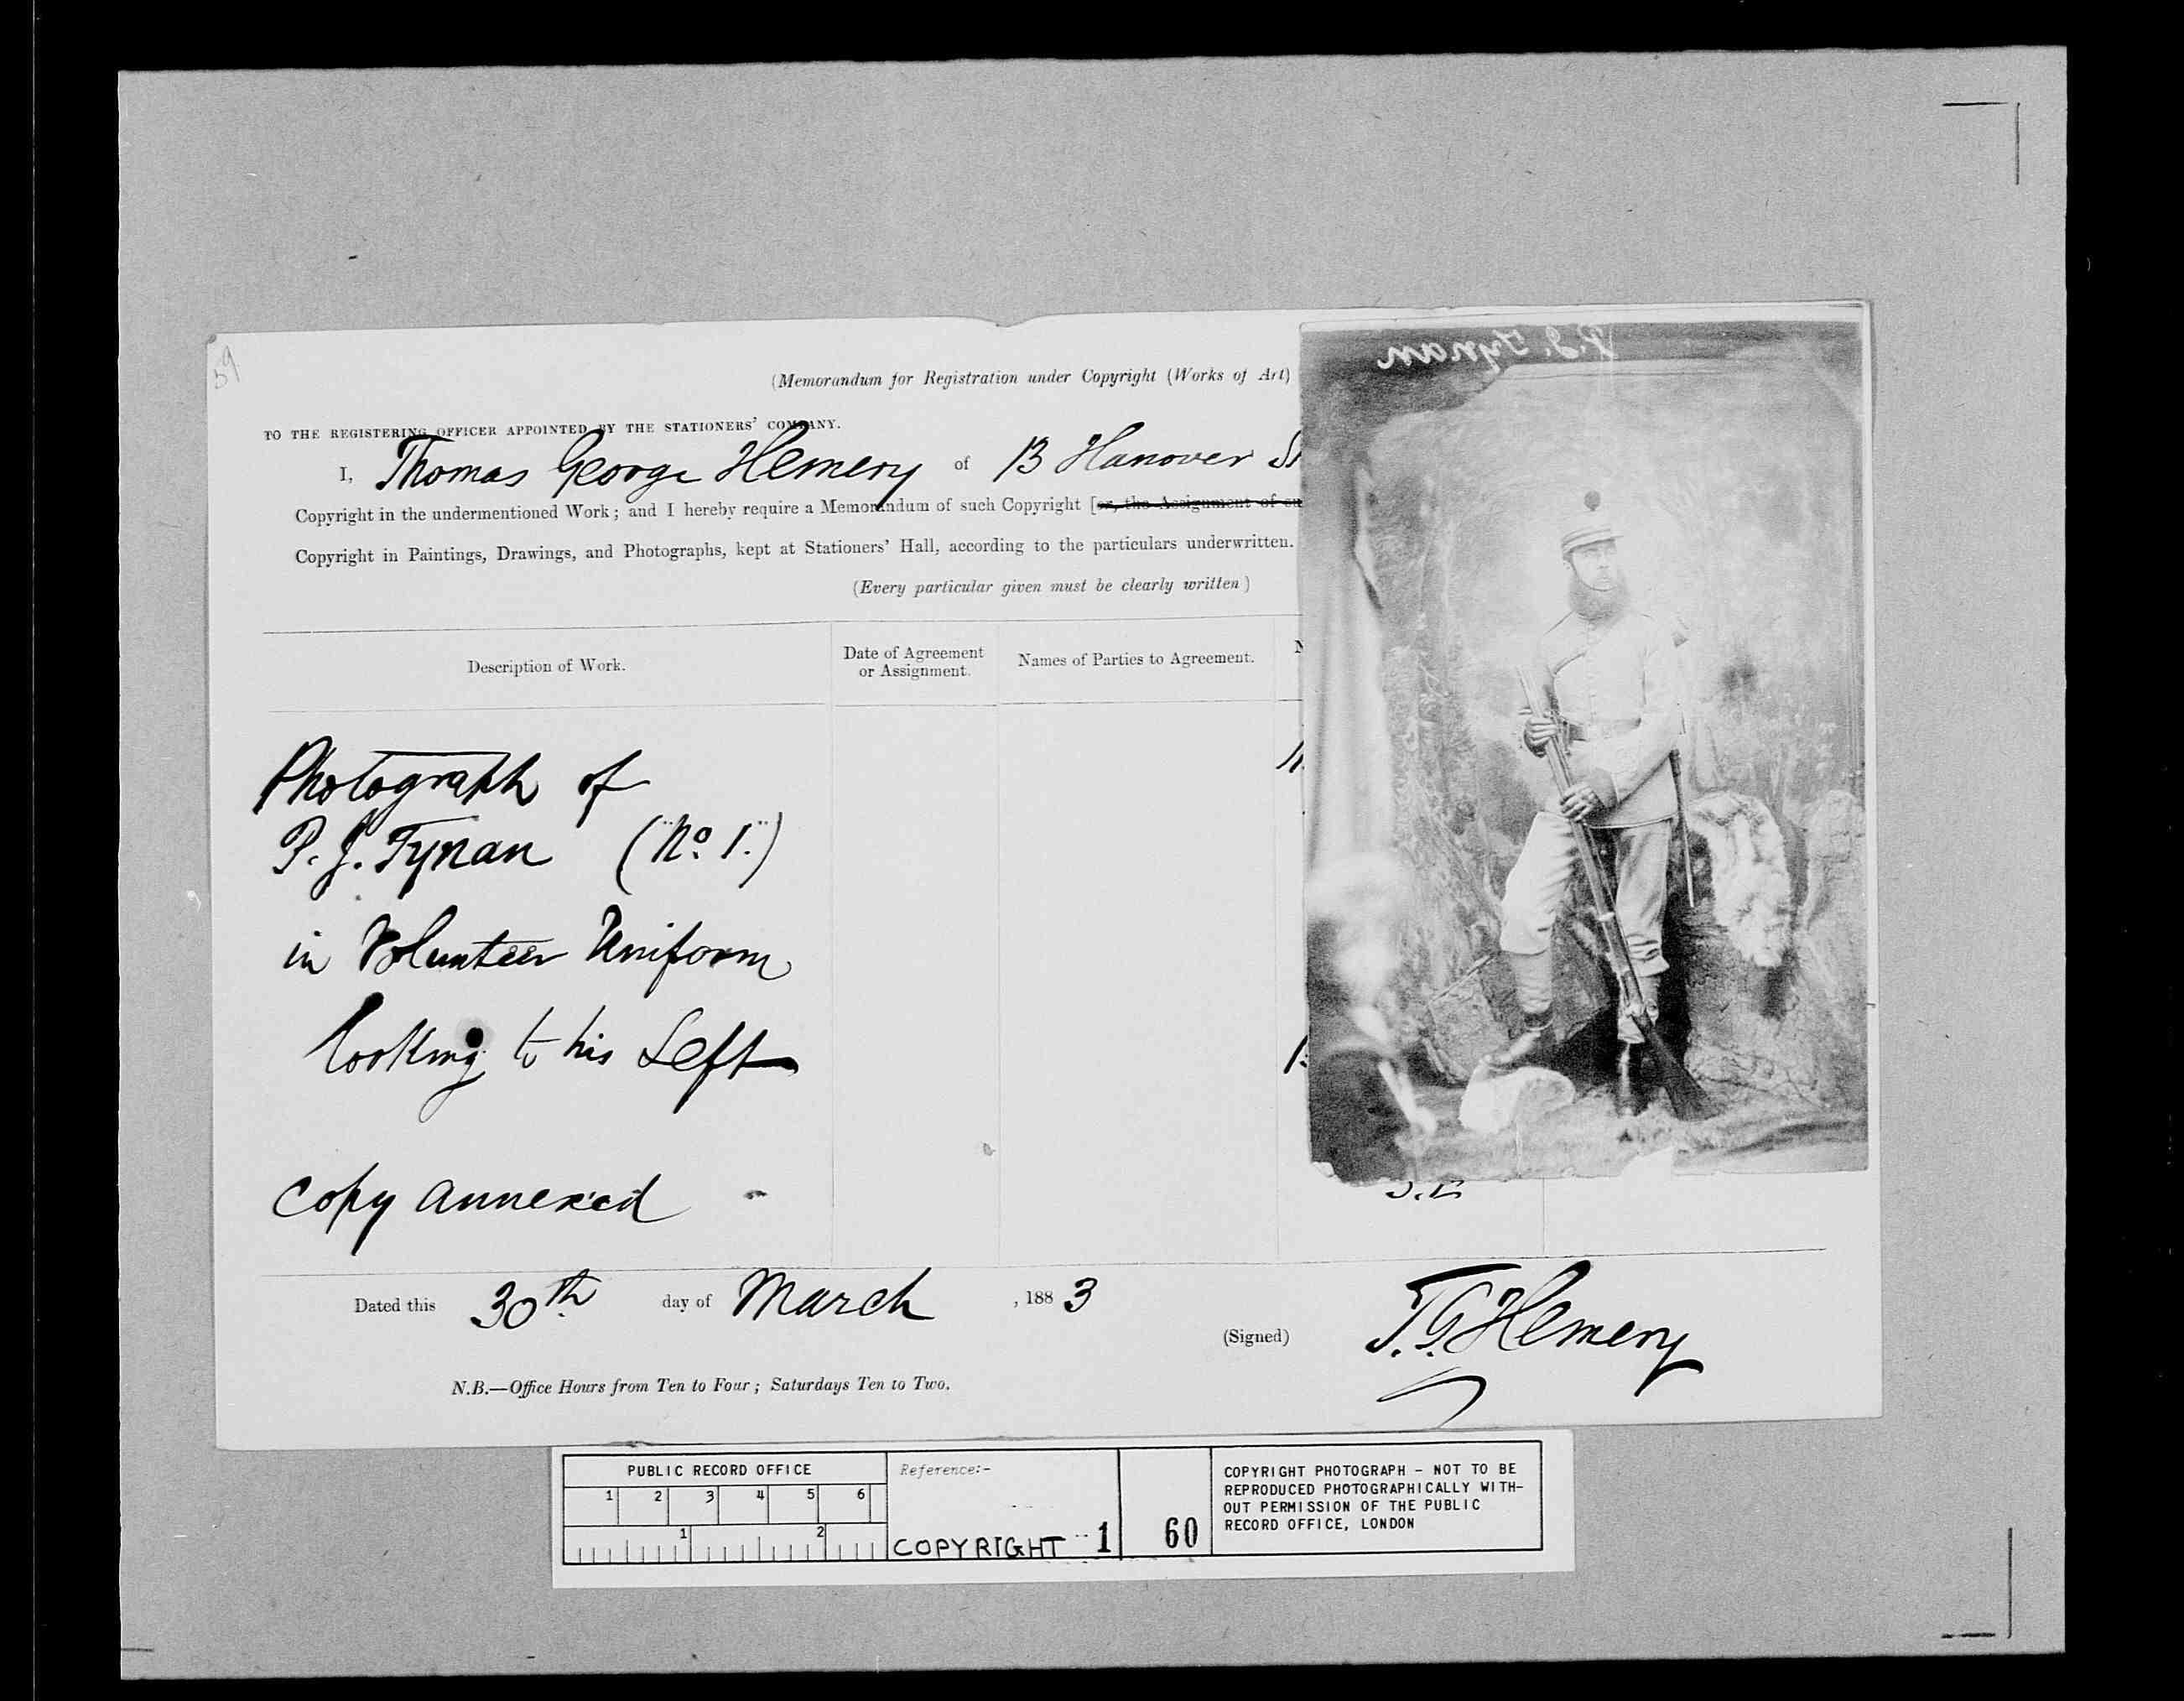 59
P. J. Tynan
(Memorandum for Registration under Copyright (Works of Art)
TO THE REGISTERING OFFICER APPOINTED BY THE STATIONERS' COMPANY.
I, Thomas George Hemery of 13 Hanover St
Copyright in the undermentioned Work; and I hereby require a Memorandum of such Copyright [or, the Assignment of su
Copyright in Paintings, Drawings, and Photographs, kept at Stationers' Hall, according to the particulars underwritten.
(Every particular given must be clearly written)
Description of Work.
Date of Agreement
or Assignment.
Names of Parties to Agreement.
N
Photograph of
P. J. Tynan ("No. 1.")
in Volunteer Uniform
looking to his Left
Copy annexed
S.E
Dated this 30th day of March, 1883
(Signed) T. G. Hemery
N.B.—Office Hours from Ten to Four; Saturdays Ten to Two.
PUBLIC RECORD OFFICE
1 2 3 4 5 6
1 2
Reference:-
COPYRIGHT 1
60
COPYRIGHT PHOTOGRAPH - NOT TO BE
REPRODUCED PHOTOGRAPHICALLY WITH-
OUT PERMISSION OF THE PUBLIC
RECORD OFFICE, LONDON